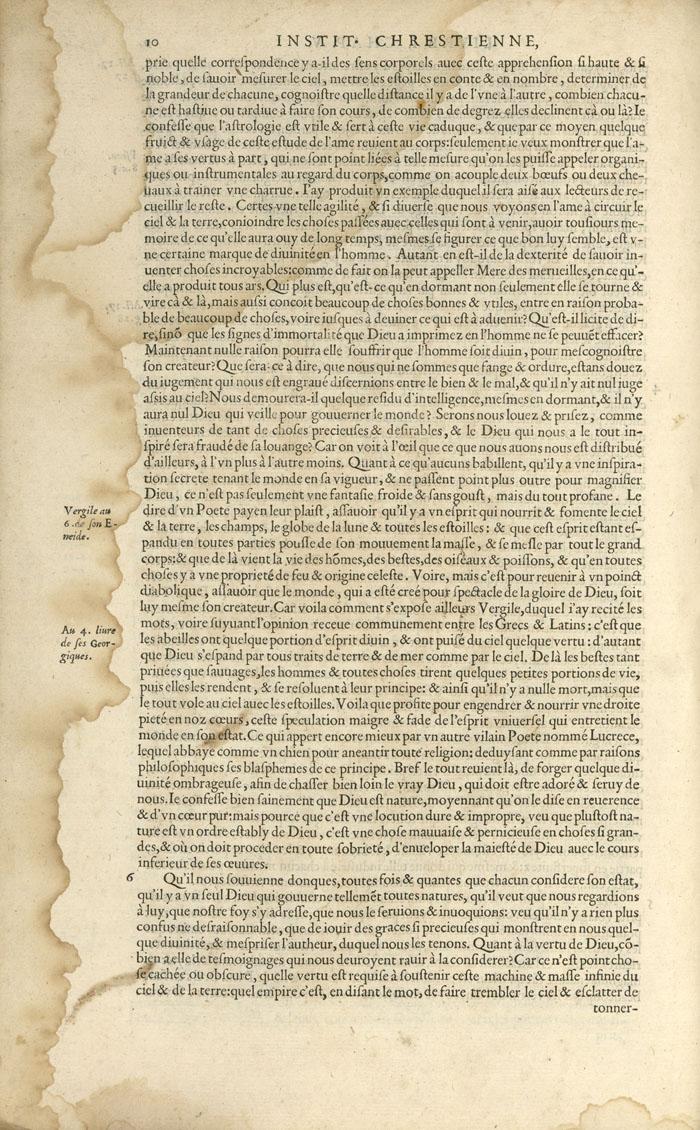 10 INSTIT· CHRESTIENNE,
prie quelle correſpondence y a-il des ſens corporels auec ceſte apprehenſion ſi haute & ſi
noble, de ſauoir meſurer le ciel, mettre les eſtoilles en conte & en nombre, determiner de
la grandeur de chacune, cognoiſtre quelle diſtance il y a de l'vne à l'autre, combien chacu-
ne eſt haſtiue ou tardiue à faire ſon cours, de combien de degrez elles declinent çà ou là? Ie
confeſſe que l'aſtrologie eſt vtile & ſert à ceſte vie caduque, & que par ce moyen quelque
fruict & vſage de ceſte eſtude de l'ame reuient au corps: ſeulement ie veux monſtrer que l'a-
me a ſes vertus à part, qui ne ſont point liées à telle meſure qu'on les puiſſe appeler organi-
ques ou inſtrumentales au regard du corps, comme on acouple deux bœufs ou deux che-
uaux à trainer vne charrue. I'ay produit vn exemple duquel il ſera aiſé aux lecteurs de re-
cueillir le reſte. Certes vne telle agilité, & ſi diuerſe que nous voyons en l'ame à circuir le
ciel & la terre, conioindre les choſes paſſées auec celles qui ſont à venir, auoir touſiours me-
moire de ce qu'elle aura ouy de long temps, meſmes ſe figurer ce que bon luy ſemble, eſt v-
ne certaine marque de diuinité en l'homme. Autant en eſt-il de la dexterité de ſauoir in-
uenter choſes incroyables: comme de fait on la peut appeller Mere des merueilles, en ce qu'-
elle a produit tous ars. Qui plus eſt, qu'eſt-ce qu'en dormant non ſeulement elle ſe tourne &
vire çà & là, mais auſſi conçoit beaucoup de choſes bonnes & vtiles, entre en raiſon proba-
ble de beaucoup de choſes, voire iuſques à deuiner ce qui eſt à aduenir? Qu'eſt-il licite de di-
re, ſinõ que les ſignes d'immortalité que Dieu a imprimez en l'homme ne ſe peuuẽt effacer?
Maintenant nulle raiſon pourra elle ſouffrir que l'homme ſoit diuin, pour meſcognoiſtre
ſon createur? Que ſera-ce à dire, que nous qui ne ſommes que fange & ordure, eſtans douez
du iugement qui nous eſt engraué diſcernions entre le bien & le mal, & qu'il n'y ait nul iuge
aſsis au ciel? Nous demourera-il quelque reſidu d'intelligence, meſmes en dormant, & il n'y
aura nul Dieu qui veille pour gouuerner le monde? Serons nous louez & priſez, comme
inuenteurs de tant de choſes precieuſes & deſirables, & le Dieu qui nous a le tout in-
ſpiré ſera fraudé de ſa louange? Car on voit à l'œil que ce que nous auons nous eſt diſtribué
d'ailleurs, à l'vn plus à l'autre moins. Quant à ce qu'aucuns babillent, qu'il y a vne inſpira-
tion ſecrete tenant le monde en ſa vigueur, & ne paſſent point plus outre pour magnifier
Dieu, ce n'eſt pas ſeulement vne fantaſie froide & ſans gouſt, mais du tout profane. Le
Vergile au
6. de ſon E-
neide.
dire d'vn Poete payen leur plaiſt, aſſauoir qu'il y a vn eſprit qui nourrit & fomente le ciel
& la terre, les champs, le globe de la lune & toutes les eſtoilles: & que ceſt eſprit eſtant eſ-
pandu en toutes parties pouſſe de ſon mouuement la maſſe, & ſe meſle par tout le grand
corps: & que de là vient la vie des hõmes, des beſtes, des oiſeaux & poiſſons, & qu'en toutes
choſes y a vne proprieté de feu & origine celeſte. Voire, mais c'eſt pour reuenir à vn poinct
diabolique, aſſauoir que le monde, qui a eſté creé pour ſpectacle de la gloire de Dieu, ſoit
luy meſme ſon createur. Car voila comment s'expoſe ailleurs Vergile, duquel i'ay recité les
Au 4. liure
de ſes Geor-
giques.
mots, voire ſuyuant l'opinion receue communement entre les Grecs & Latins: c'eſt que
les abeilles ont quelque portion d'eſprit diuin, & ont puiſé du ciel quelque vertu: d'autant
que Dieu s'eſpand par tous traits de terre & de mer comme par le ciel. De là les beſtes tant
priuées que ſauuages, les hommes & toutes choſes tirent quelques petites portions de vie,
puis elles les rendent, & ſe reſoluent à leur principe: & ainſi qu'il n'y a nulle mort, mais que
le tout vole au ciel auec les eſtoilles. Voila que profite pour engendrer & nourrir vne droite
pieté en noz cœurs, ceſte ſpeculation maigre & fade de l'eſprit vniuerſel qui entretient le
monde en ſon eſtat. Ce qui appert encore mieux par vn autre vilain Poete nommé Lucrece,
lequel abbaye comme vn chien pour aneantir toute religion: deduyſant comme par raiſons
philoſophiques ſes blaſphemes de ce principe. Bref le tout reuient là, de forger quelque di-
uinité ombrageuſe, afin de chaſſer bien loin le vray Dieu, qui doit eſtre adoré & ſeruy de
nous. Ie confeſſe bien ſainement que Dieu eſt nature, moyennant qu'on le diſe en reuerence
& d'vn cœur pur: mais pource que c'eſt vne locution dure & impropre, veu que pluſtoſt na-
ture eſt vn ordre eſtably de Dieu, c'eſt vne choſe mauuaiſe & pernicieuſe en choſes ſi gran-
des, & où on doit proceder en toute ſobrieté, d'enueloper la maieſté de Dieu auec le cours
inferieur de ſes œuures.
6 Qu'il nous ſouuienne donques, toutes fois & quantes que chacun conſidere ſon eſtat,
qu'il y a vn ſeul Dieu qui gouuerne tellemẽt toutes natures, qu'il veut que nous regardions
à luy, que noſtre foy s'y adreſſe, que nous le ſeruions & inuoquions: veu qu'il n'y a rien plus
confus ne deſraiſonnable, que de iouir des graces ſi precieuſes qui monſtrent en nous quel-
que diuinité, & meſpriſer l'autheur, duquel nous les tenons. Quant à la vertu de Dieu, cõ-
bien a elle de teſmoignages qui nous deuroyent rauir à la conſiderer? Car ce n'eſt point cho-
ſe cachée ou obſcure, quelle vertu eſt requiſe à ſouſtenir ceſte machine & maſſe infinie du
ciel & de la terre: quel empire c'eſt, en diſant le mot, de faire trembler le ciel & eſclatter de
tonner-